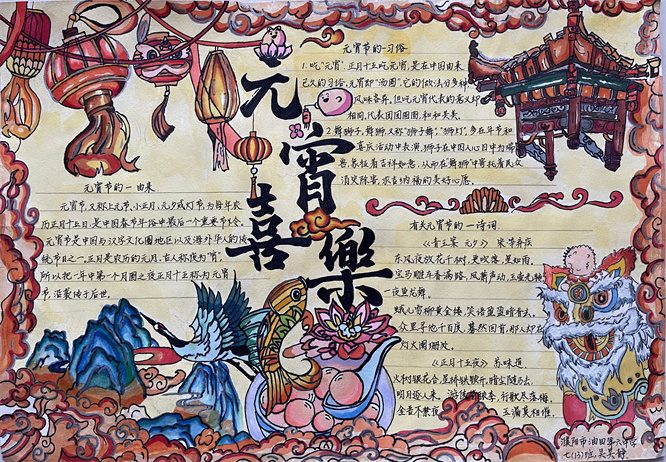 元宵喜樂
元宵节的一由来
元宵节,又称上元节、小正月、元夕或灯节,为每年农
历正月十五日,是中国春节年俗中最后一个重要节令。
元宵节是中国与汉字文化圈地区以及海外华人的传
统节日之一。正月是农历的元月,古人称夜为"宵",
所以把一年中第一个月圆之夜正月十五称为元宵
节,沿袭传于后世。
元宵节的一习俗
1.吃"元宵",正月十五吃元宵,是在中国由来
已久的习俗,元宵即"汤圆",它的做法分多种
风味各异,但吃元宵代表的意义却
相同,代表团团圆圆,和和美美。
2.舞狮子,舞狮又称"狮子舞"、"狮灯",多在年节和
喜庆活动中表演。狮子在中国人心目中为瑞
兽,象征着吉祥如意,从而在舞狮中寄托着民众
消灾除害、求吉纳福的美好心愿。
有关元宵节的一诗词
《青玉案 元夕》 宋·辛弃疾
东风夜放花千树,更吹落,星如雨。
宝马雕车香满路,凤箫声动,玉壶光转,
一夜鱼龙舞。
蛾儿雪柳黄金缕,笑语盈盈暗香去。
众里寻他千百度,蓦然回首,那人却在
灯火阑珊处。
《正月十五夜》 苏味道
火树银花合,星桥铁锁开。暗尘随马去,
明月逐人来。游伎皆秾李,行歌尽落梅。
金吾不禁夜,玉漏莫相催。
濮阳市油田第六中学
七(13)班,吴昊静